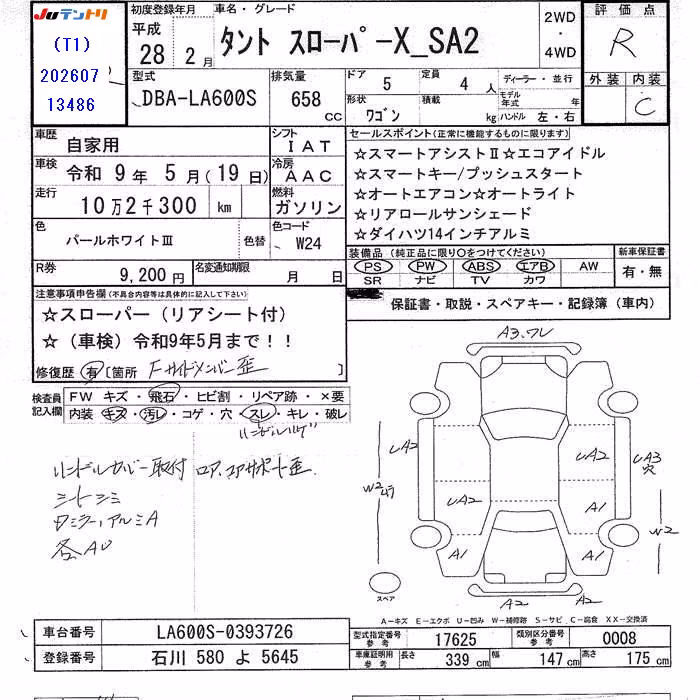 Juテントリ
(T1)
202607
13486
初度登録年月
平成
28年 2月
車名・グレード
タント スローパーX_SA2
2WD
・
4WD
評価点
R
外装 内装
C
型式
DBA-LA600S
排気量
658 CC
ドア 5
定員 4 人
形状 ワゴン
積載 kg
ディーラー・並行
モデル年式 年
ハンドル 左・右
車歴 自家用
シフト IAT
車検 令和 9年 5月(19日)
冷房 AAC
走行 10万2千300 km
燃料 ガソリン
色 パールホワイトⅢ 色替
色コード W24
R券 9,200円
名変通知期限 月 日
セールスポイント(正常に機能するものに限ります)
☆スマートアシストⅡ☆エコアイドル
☆スマートキー/プッシュスタート
☆オートエアコン☆オートライト
☆リアロールサンシェード
☆ダイハツ14インチアルミ
装備品(純正品に限り〇をつけてください)
PS PW ABS エアB AW
SR ナビ TV カワ
新車保証書
有・無
保証書・取説・スペアキー・記録簿(車内)
注意事項申告欄(不具合内容等は具体的に記入して下さい)
☆スローパー(リアシート付)
☆(車検)令和9年5月まで!!
修復歴 有[箇所 Fサイドメンバー歪 ]
検査員記入欄
FW キズ・飛石・ヒビ割・リペア跡・×要
内装 キズ・汚レ・コゲ・穴・スレ・キレ・破レ
ハンドルハゲ
ハンドルカバー取付 ロア、コアサポート歪
シートシミ
ロミラー、アルミA
各AU
A3.ワレ
UA2
UA2
UA3
穴
W2
UA2
A1
W2
A1
A1
A2
A2
スペア
A-キズ E-エクボ U-凹み W-補修跡 S-サビ C-腐食 XX-交換済
車台番号 LA600S-0393726
登録番号 石川 580 よ 5645
型式指定番号 参考 17625
類別区分番号 参考 0008
車庫証明用 参考 長さ 339 cm 幅 147 cm 高さ 175 cm